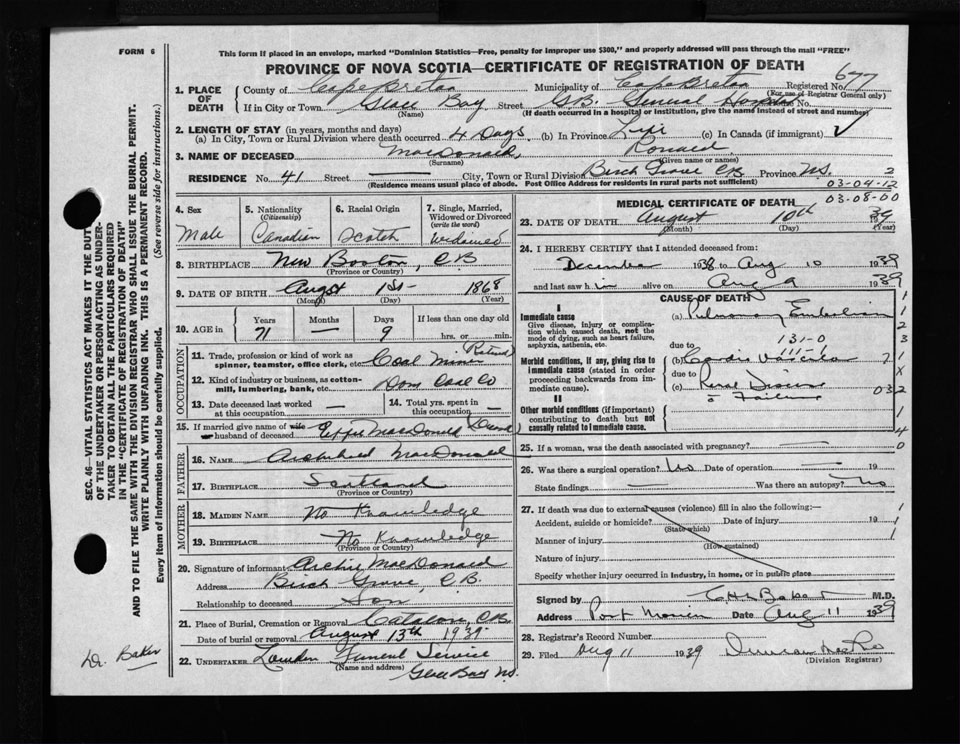 FORM 6
This form if placed in an envelope, marked "Dominion Statistics—Free, penalty for improper use $300," and properly addressed will pass through the mail "FREE"
PROVINCE OF NOVA SCOTIA—CERTIFICATE OF REGISTRATION OF DEATH
1. PLACE OF DEATH
County of Cape Breton Municipality of Cape Breton Registered No. 677
(For use of Registrar General only)
If in City or Town Glace Bay Street G.B. General Hospital
(Name) (If death occurred in a hospital or institution, give the name instead of street and number)
2. LENGTH OF STAY (in years, months and days)
(a) In City, Town or Rural Division where death occurred 4 Days (b) In Province Life (c) In Canada (if immigrant)
3. NAME OF DECEASED MacDonald, Ronald
(Surname) (Given name or names)
RESIDENCE No. 41 Street — City, Town or Rural Division Birch Grove CB Province NS. 2
(Residence means usual place of abode. Post Office Address for residents in rural parts not sufficient)
03-04-12
03-08-00
4. Sex Male
5. Nationality (Citizenship) Canadian
6. Racial Origin Scotch
7. Single, Married, Widowed or Divorced (write the word) Widowed
8. BIRTHPLACE New Boston, CB
(Province or Country)
9. DATE OF BIRTH August 1st 1868
(Month) (Day) (Year)
10. AGE in Years Months Days If less than one day old
71 — 9 hrs. or min.
OCCUPATION
11. Trade, profession or kind of work as spinner, teamster, office clerk, etc. Coal Miner Retired
12. Kind of industry or business, as cotton-mill, lumbering, bank, etc. Dom Coal Co
13. Date deceased last worked at this occupation. —
14. Total yrs. spent in this occupation —
15. If married give name of wife husband of deceased Effie MacDonald
FATHER
16. NAME Archibald MacDonald
17. BIRTHPLACE Scotland
(Province or Country)
MOTHER
18. MAIDEN NAME No Knowledge
19. BIRTHPLACE No Knowledge
(Province or Country)
20. Signature of informant Archie MacDonald
Address Birch Grove, C.B.
Relationship to deceased Son
21. Place of Burial, Cremation or Removal Catalone, CB
Date of burial or removal August 13th 1939
22. UNDERTAKER Funeral Service
(Name and address)
Glace Bay NS.
MEDICAL CERTIFICATE OF DEATH
23. DATE OF DEATH August 10th 1939
(Month) (Day) (Year)
24. I HEREBY CERTIFY that I attended deceased from:
December 1938 to Aug 10 1939
and last saw him alive on Aug 9 1939
CAUSE OF DEATH
I
Immediate cause
Give disease, injury or complication which caused death, not the mode of dying, such as heart failure, asphyxia, asthenia, etc.
(a) Pulmonary Embolism
due to
131-0
Morbid conditions, if any, giving rise to immediate cause (stated in order proceeding backwards from immediate cause).
(b) Cardio Vascular
due to
(c) Renal Disease
Failure
II
Other morbid conditions (if important) contributing to death but not causally related to immediate cause.
25. If a woman, was the death associated with pregnancy? —
26. Was there a surgical operation? No Date of operation — 19
State findings — Was there an autopsy? No
27. If death was due to external causes (violence) fill in also the following:—
Accident, suicide or homicide? Date of injury 19
(State which)
Manner of injury
(How sustained)
Nature of injury
Specify whether injury occurred in industry, in home, or in public place
Signed by Baker M.D.
Address Port Morien Date Aug 11 1939
28. Registrar's Record Number
29. Filed Aug 11 1939
(Division Registrar)
SEC. 46—VITAL STATISTICS ACT MAKES IT THE DUTY
OF THE UNDERTAKER OR PERSON ACTING AS UNDER-
TAKER TO OBTAIN ALL THE PARTICULARS REQUIRED
IN THE "CERTIFICATE OF REGISTRATION OF DEATH"
AND TO FILE THE SAME WITH THE DIVISION REGISTRAR WHO SHALL ISSUE THE BURIAL PERMIT.
WRITE PLAINLY WITH UNFADING INK. THIS IS A PERMANENT RECORD.
Every item of information should be carefully supplied. (See reverse side for instructions.)
Dr. Baker